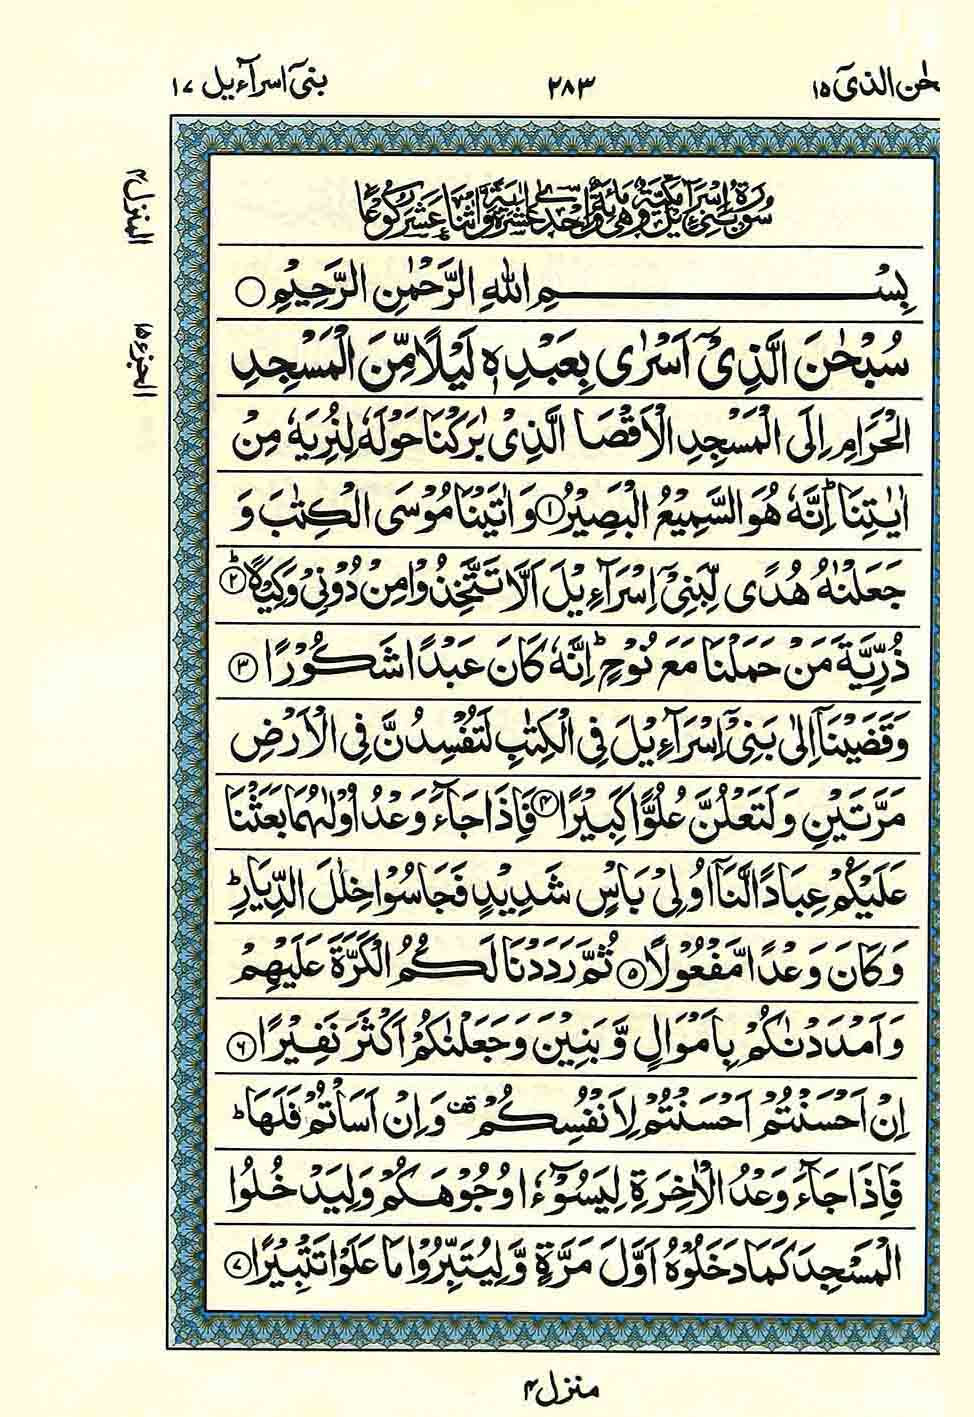 حٰن الذیٓ ۱۵
۲۸۳
بنیٓ اسرآءیل ۱۷
المنزل ۴
الجزء ۱۵
سُوْرَةُ بَنِيْٓ اِسْرَآءِيْلَ مَكِّيَّةٌ وَّهِيَ مِائَةٌ وَّاِحْدٰى عَشْرَةَ اٰيَةً وَّاثْنَا عَشَرَ رُكُوْعًا
بِسْمِ اللهِ الرَّحْمٰنِ الرَّحِيْمِ ○
سُبْحٰنَ الَّذِيْٓ اَسْرٰى بِعَبْدِهٖ لَيْلًا مِّنَ الْمَسْجِدِ
الْحَرَامِ اِلَى الْمَسْجِدِ الْاَقْصَا الَّذِيْ بٰرَكْنَا حَوْلَهٗ لِنُرِيَهٗ مِنْ
اٰيٰتِنَا ؕ اِنَّهٗ هُوَ السَّمِيْعُ الْبَصِيْرُ ۱ وَاٰتَيْنَا مُوْسَى الْكِتٰبَ وَ
جَعَلْنٰهُ هُدًى لِّبَنِيْٓ اِسْرَآءِيْلَ اَلَّا تَتَّخِذُوْا مِنْ دُوْنِيْ وَكِيْلًا ؕ ۲
ذُرِّيَّةَ مَنْ حَمَلْنَا مَعَ نُوْحٍ ؕ اِنَّهٗ كَانَ عَبْدًا شَكُوْرًا ۳
وَقَضَيْنَآ اِلٰى بَنِيْٓ اِسْرَآءِيْلَ فِي الْكِتٰبِ لَتُفْسِدُنَّ فِي الْاَرْضِ
مَرَّتَيْنِ وَلَتَعْلُنَّ عُلُوًّا كَبِيْرًا ۴ فَاِذَا جَآءَ وَعْدُ اُوْلٰىهُمَا بَعَثْنَا
عَلَيْكُمْ عِبَادًا لَّنَآ اُولِيْ بَاْسٍ شَدِيْدٍ فَجَاسُوْا خِلٰلَ الدِّيَارِ ؕ
وَكَانَ وَعْدًا مَّفْعُوْلًا ۵ ثُمَّ رَدَدْنَا لَكُمُ الْكَرَّةَ عَلَيْهِمْ
وَاَمْدَدْنٰكُمْ بِاَمْوَالٍ وَّبَنِيْنَ وَجَعَلْنٰكُمْ اَكْثَرَ نَفِيْرًا ۶
اِنْ اَحْسَنْتُمْ اَحْسَنْتُمْ لِاَنْفُسِكُمْ قف وَاِنْ اَسَاْتُمْ فَلَهَا ؕ
فَاِذَا جَآءَ وَعْدُ الْاٰخِرَةِ لِيَسُوْٓءٗا وُجُوْهَكُمْ وَلِيَدْخُلُوا
الْمَسْجِدَ كَمَا دَخَلُوْهُ اَوَّلَ مَرَّةٍ وَّلِيُتَبِّرُوْا مَا عَلَوْا تَتْبِيْرًا ۷
منزل ۴